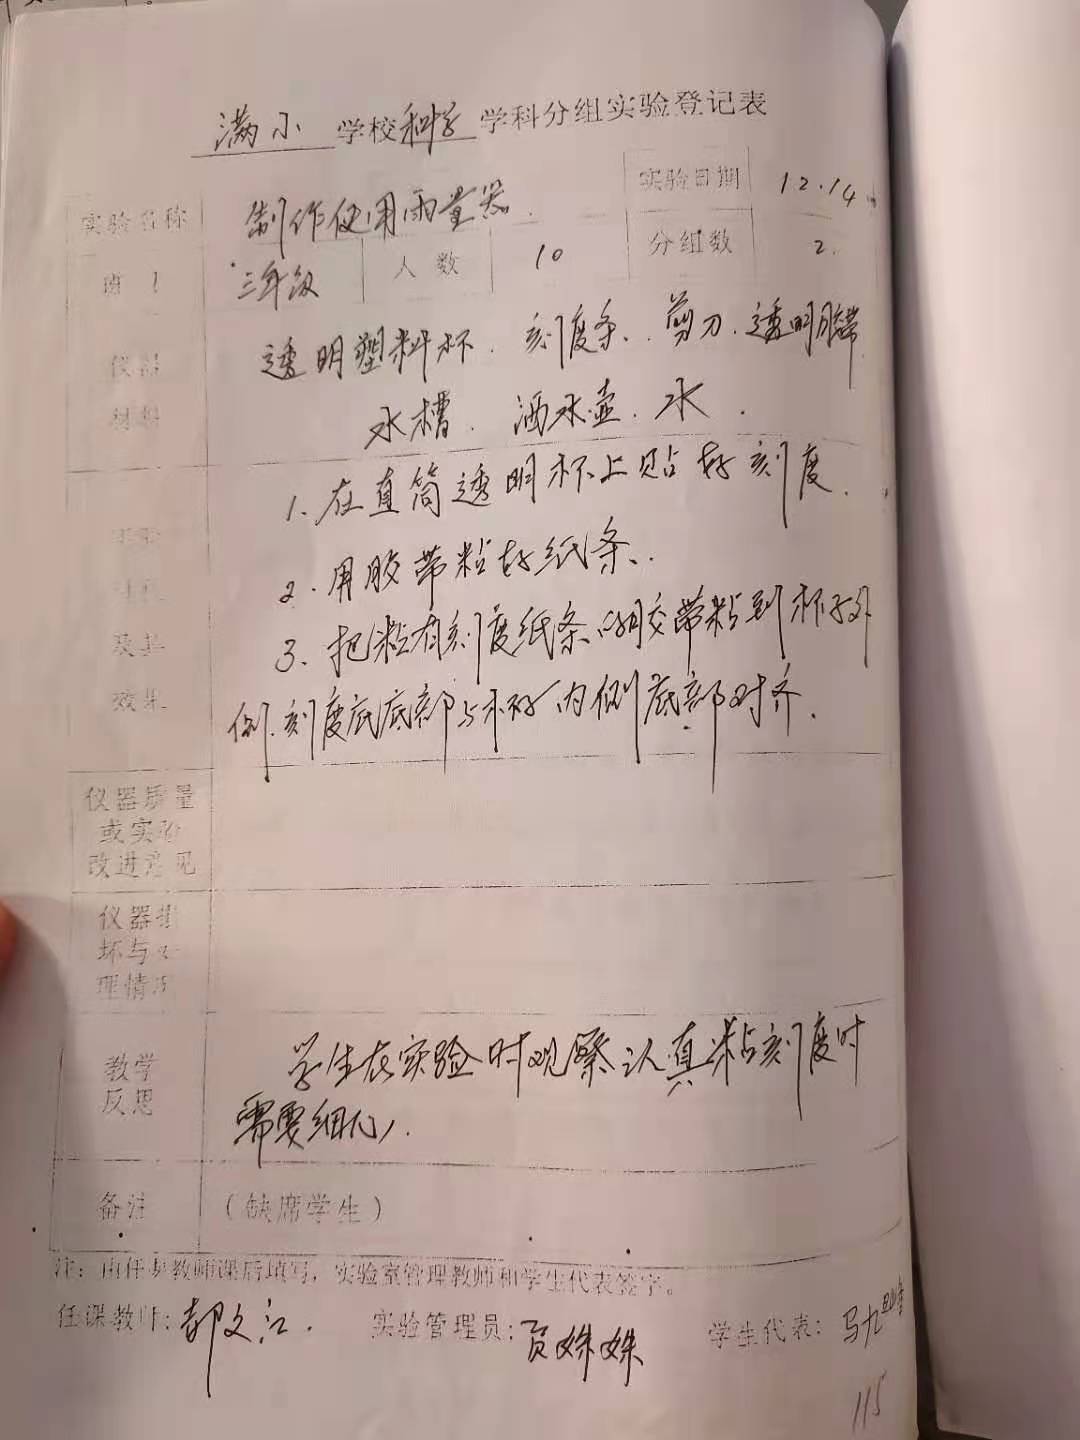 满小 学校 科学 学科分组实验登记表
实验名称 制作使用雨量器 实验日期 12.14
三年级 人数 10 分组数 2.
仪器 透明塑料杯. 刻度条. 剪刀. 透明胶带
材料 水槽. 洒水壶. 水.
1. 在直筒透明杯上贴好刻度.
2. 用胶带粘好纸条.
及其 3. 把粘有刻度纸条的胶带粘到杯子外
效果 侧. 刻度底底部与杯子内侧底部对齐.
仪器质量
或实验
改进意见
仪器损
坏与处
理情况
教学 学生在实验时观察认真粘刻度时
反思 需要细心.
备注 (缺席学生)
注: 由任课教师课后填写, 实验室管理教师和学生代表签字。
任课教师: 郝文江. 实验管理员: 贾姝姝 学生代表: 马九
115